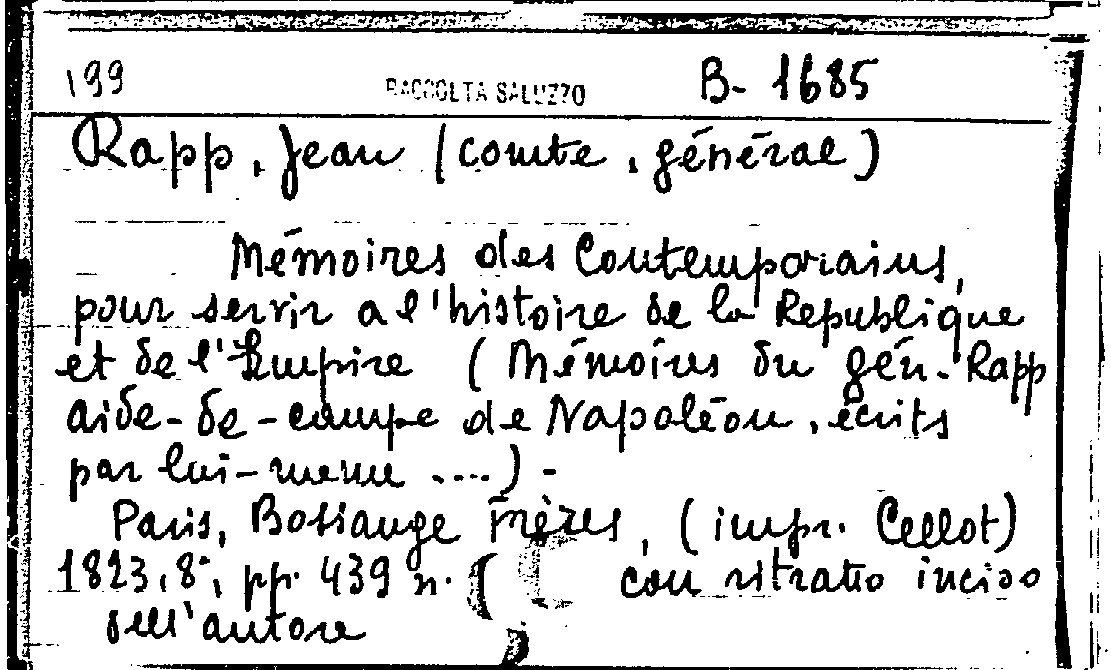 199 RACCOLTA SALUZZO B- 1685
Rapp, Jean (comte, général)
Mémoires des Contemporains,
pour servir a l'histoire de la Republique
et de l'Empire (Mémoires du gén. Rapp
aide-de-campe de Napoléon, écrits
par lui-meme ....) -
Paris, Bossange Frères, (impr. Cellot)
1823, 8°, pp. 439 n. ( con ritratto inciso
dell'autore